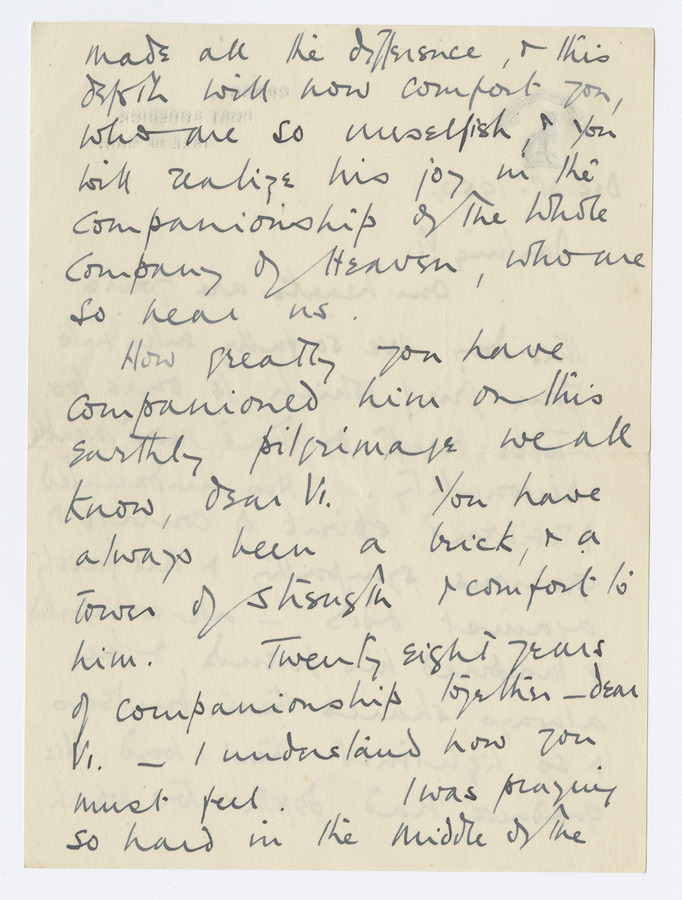 made all the difference, & this
depth will now comfort you,
who are so unselfish, & you
will realize his joy in the
companionship of the Whole
Company of Heaven, who are
so near us.
How greatly you have
companioned him on this
earthly pilgrimage we all
know, dear Vi. You have
always been a brick, & a
tower of strength & comfort to
him. Twenty eight years
of companionship together – dear
Vi. – I understand how you
must feel I was praying
so hard in the middle of the